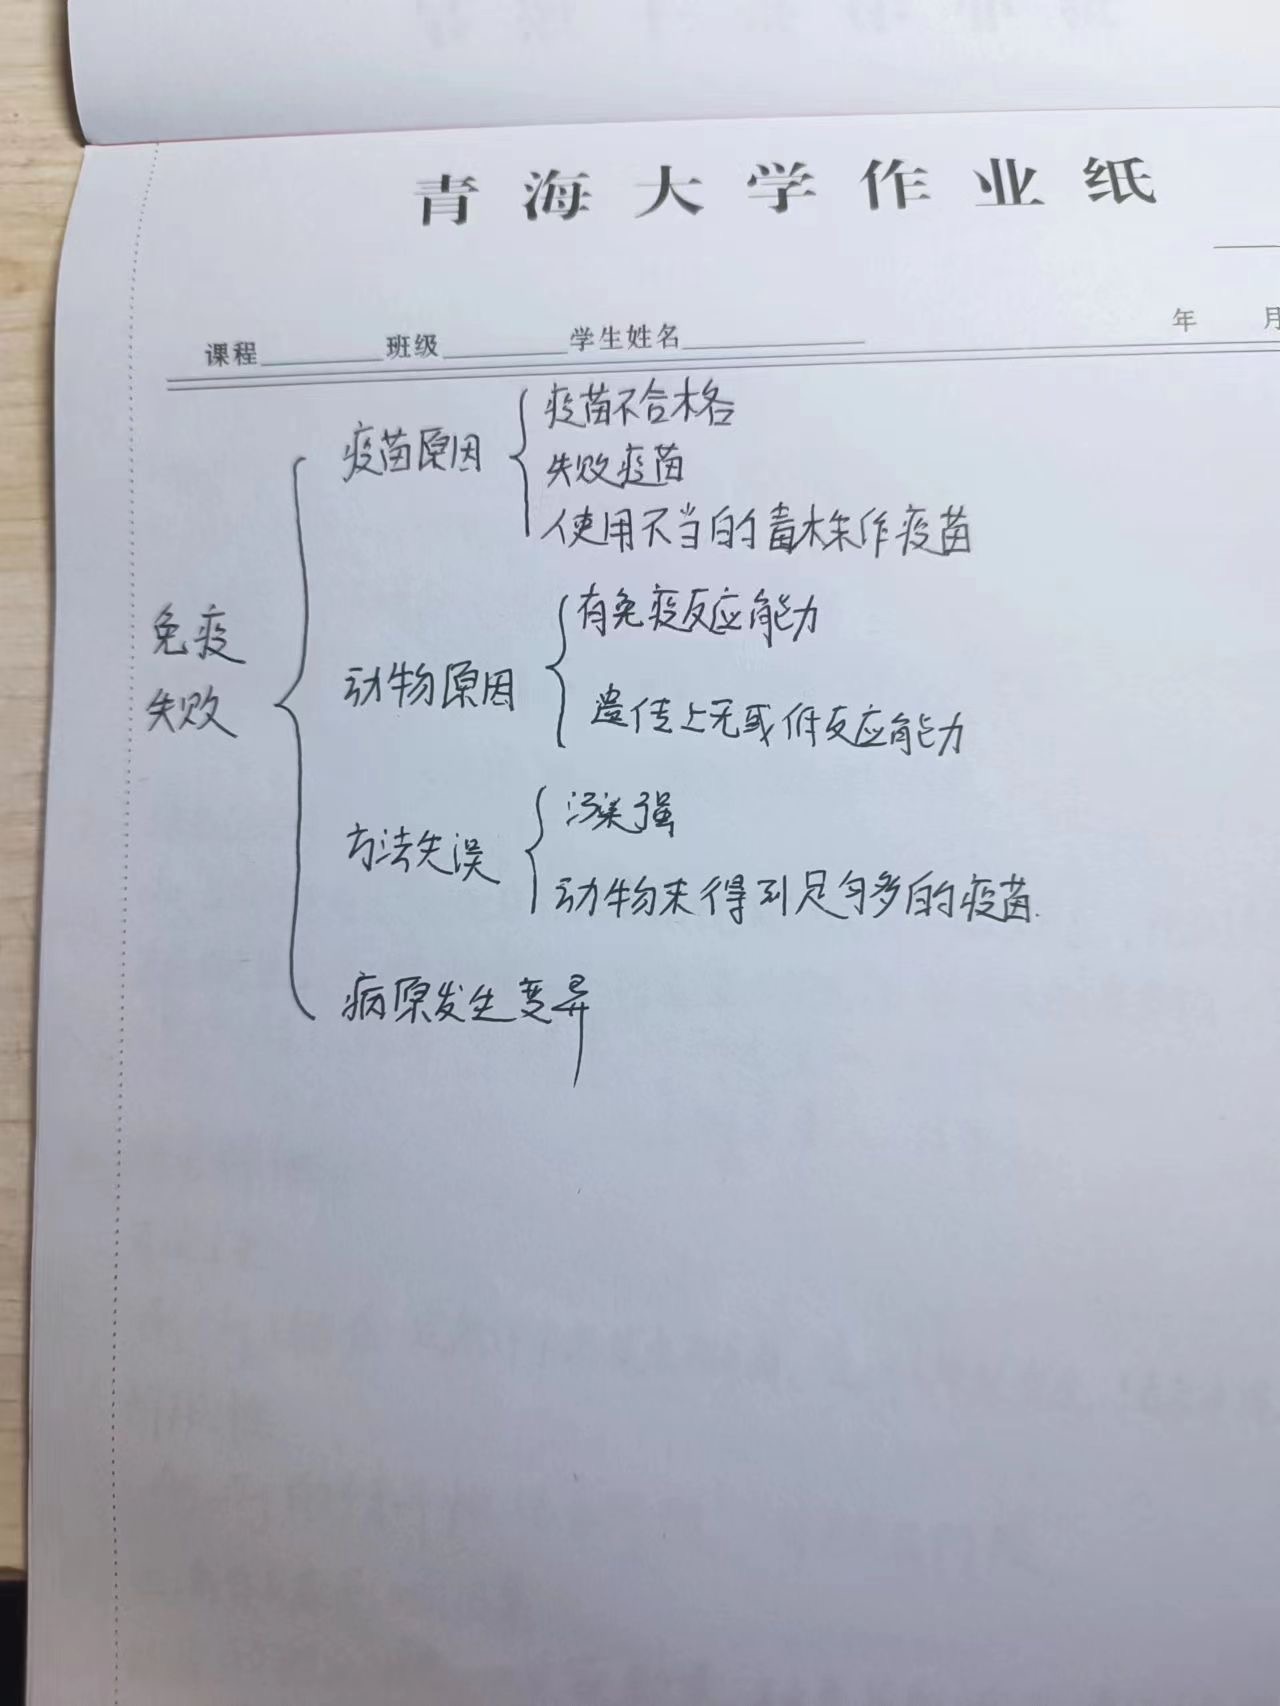 青海大学作业纸
课程 班级 学生姓名 年 月
免疫
失败
疫苗原因
疫苗不合格
失败疫苗
使用不当的毒株作疫苗
动物原因
有免疫反应能力
遗传上无或低反应能力
方法失误
污染强
动物未得到足够多的疫苗.
病原发生变异